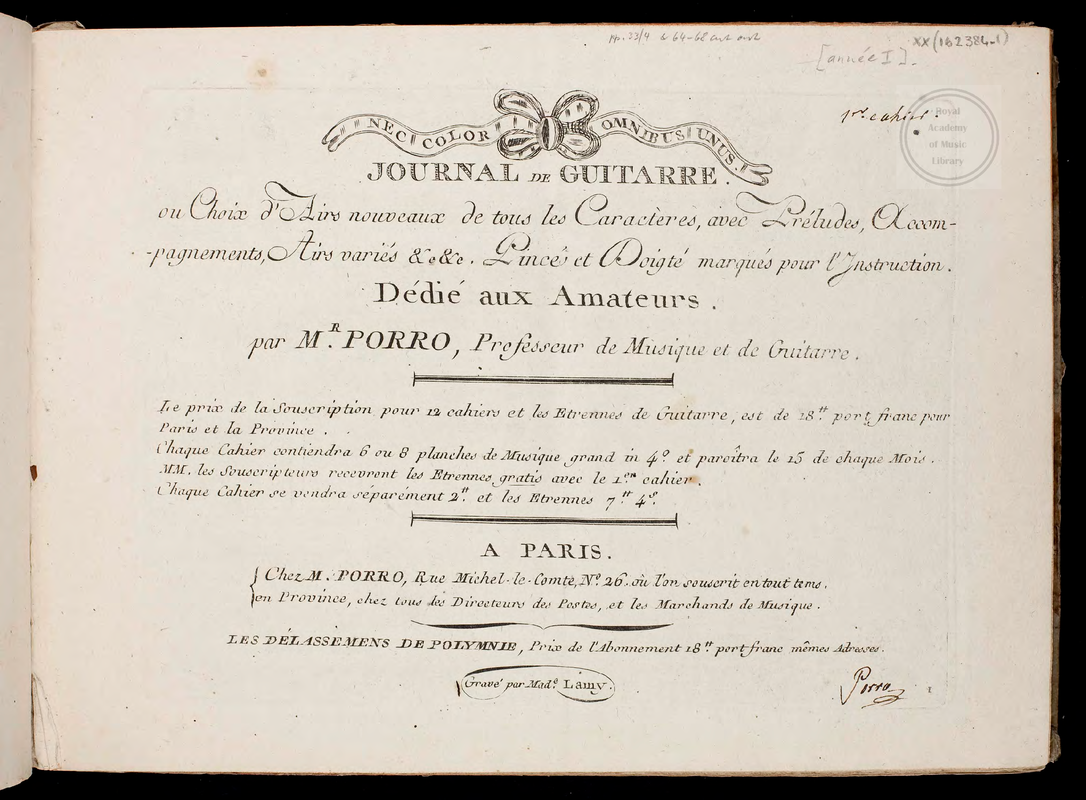 pp. 33/4 & 64-68 cut out
XX(162384.1)
[année I].
1er cahier.
Royal
Academy
of Music
Library
NEC COLOR OMNIBUS UNUS.
JOURNAL DE GUITARRE.
ou Choix d'Airs nouveaux de tous les Caractères, avec Préludes, Accom-
-pagnements, Airs variés &c &c. Pincés et Doigté marqués pour l'Instruction.
Dédié aux Amateurs.
par MR. PORRO, Professeur de Musique et de Guitarre.
Le prix de la Souscription pour 12 cahiers et les Etrennes de Guitarre, est de 18tt port franc pour
Paris et la Province.
Chaque Cahier contiendra 6 ou 8 planches de Musique grand in 4o. et paroîtra le 15 de chaque Mois.
MM. les Souscripteurs recevront les Etrennes gratis avec le 1er cahier.
Chaque Cahier se vendra séparément 2tt et les Etrennes 7tt 4s.
A PARIS.
Chez M. PORRO, Rue Michel-le-Comte, No. 26. où l'on souscrit en tout tems.
en Province, chez tous les Directeurs des Postes, et les Marchands de Musique.
LES DÉLASSEMENS DE POLYMNIE, Prix de l'Abonnement 18tt port franc mêmes Adresses.
Gravé par Made. Lamy.
Porro
1